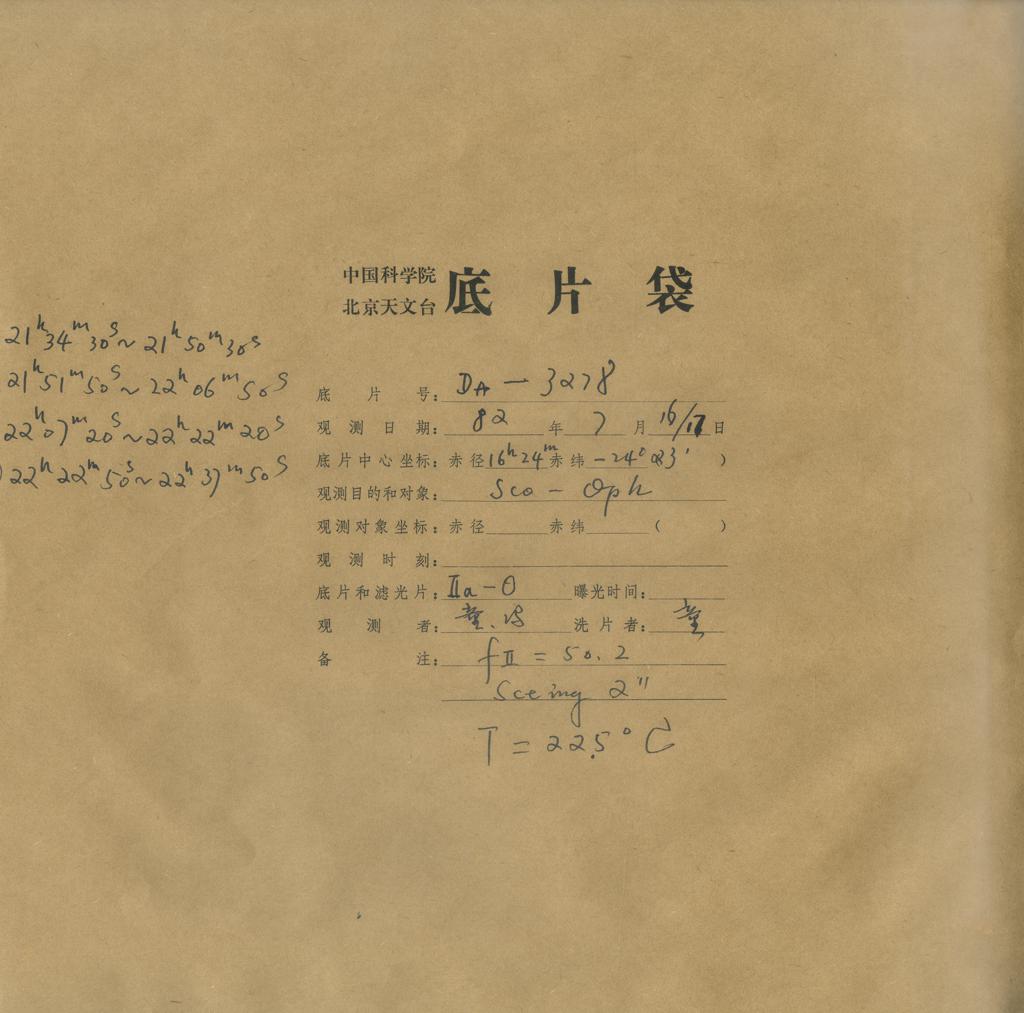 中国科学院
北京天文台
底片袋
21h34m30s~21h50m30s
21h51m50s~22h06m50s
22h07m20s~22h22m20s
22h22m50s~22h37m50s
底片号: DA-3278
观测日期: 82年7月16/17日
底片中心坐标: 赤径16h24m赤纬-24°23′ )
观测目的和对象: Sco - Oph
观测对象坐标: 赤径 赤纬 ( )
观测时刻:
底片和滤光片: IIa-O 曝光时间:
观测者: 童. 洗片者: 童
备注: fII = 50.2
Seeing 2"
T = 22.5°C